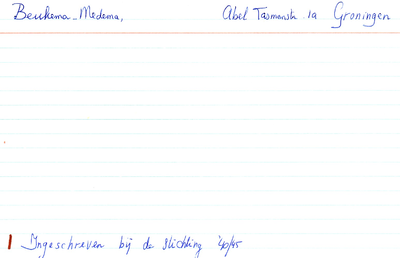 Beukema-Medema, Abel Tasmanstr. 1a Groningen
Ingeschreven bij de Stichting '40/'45